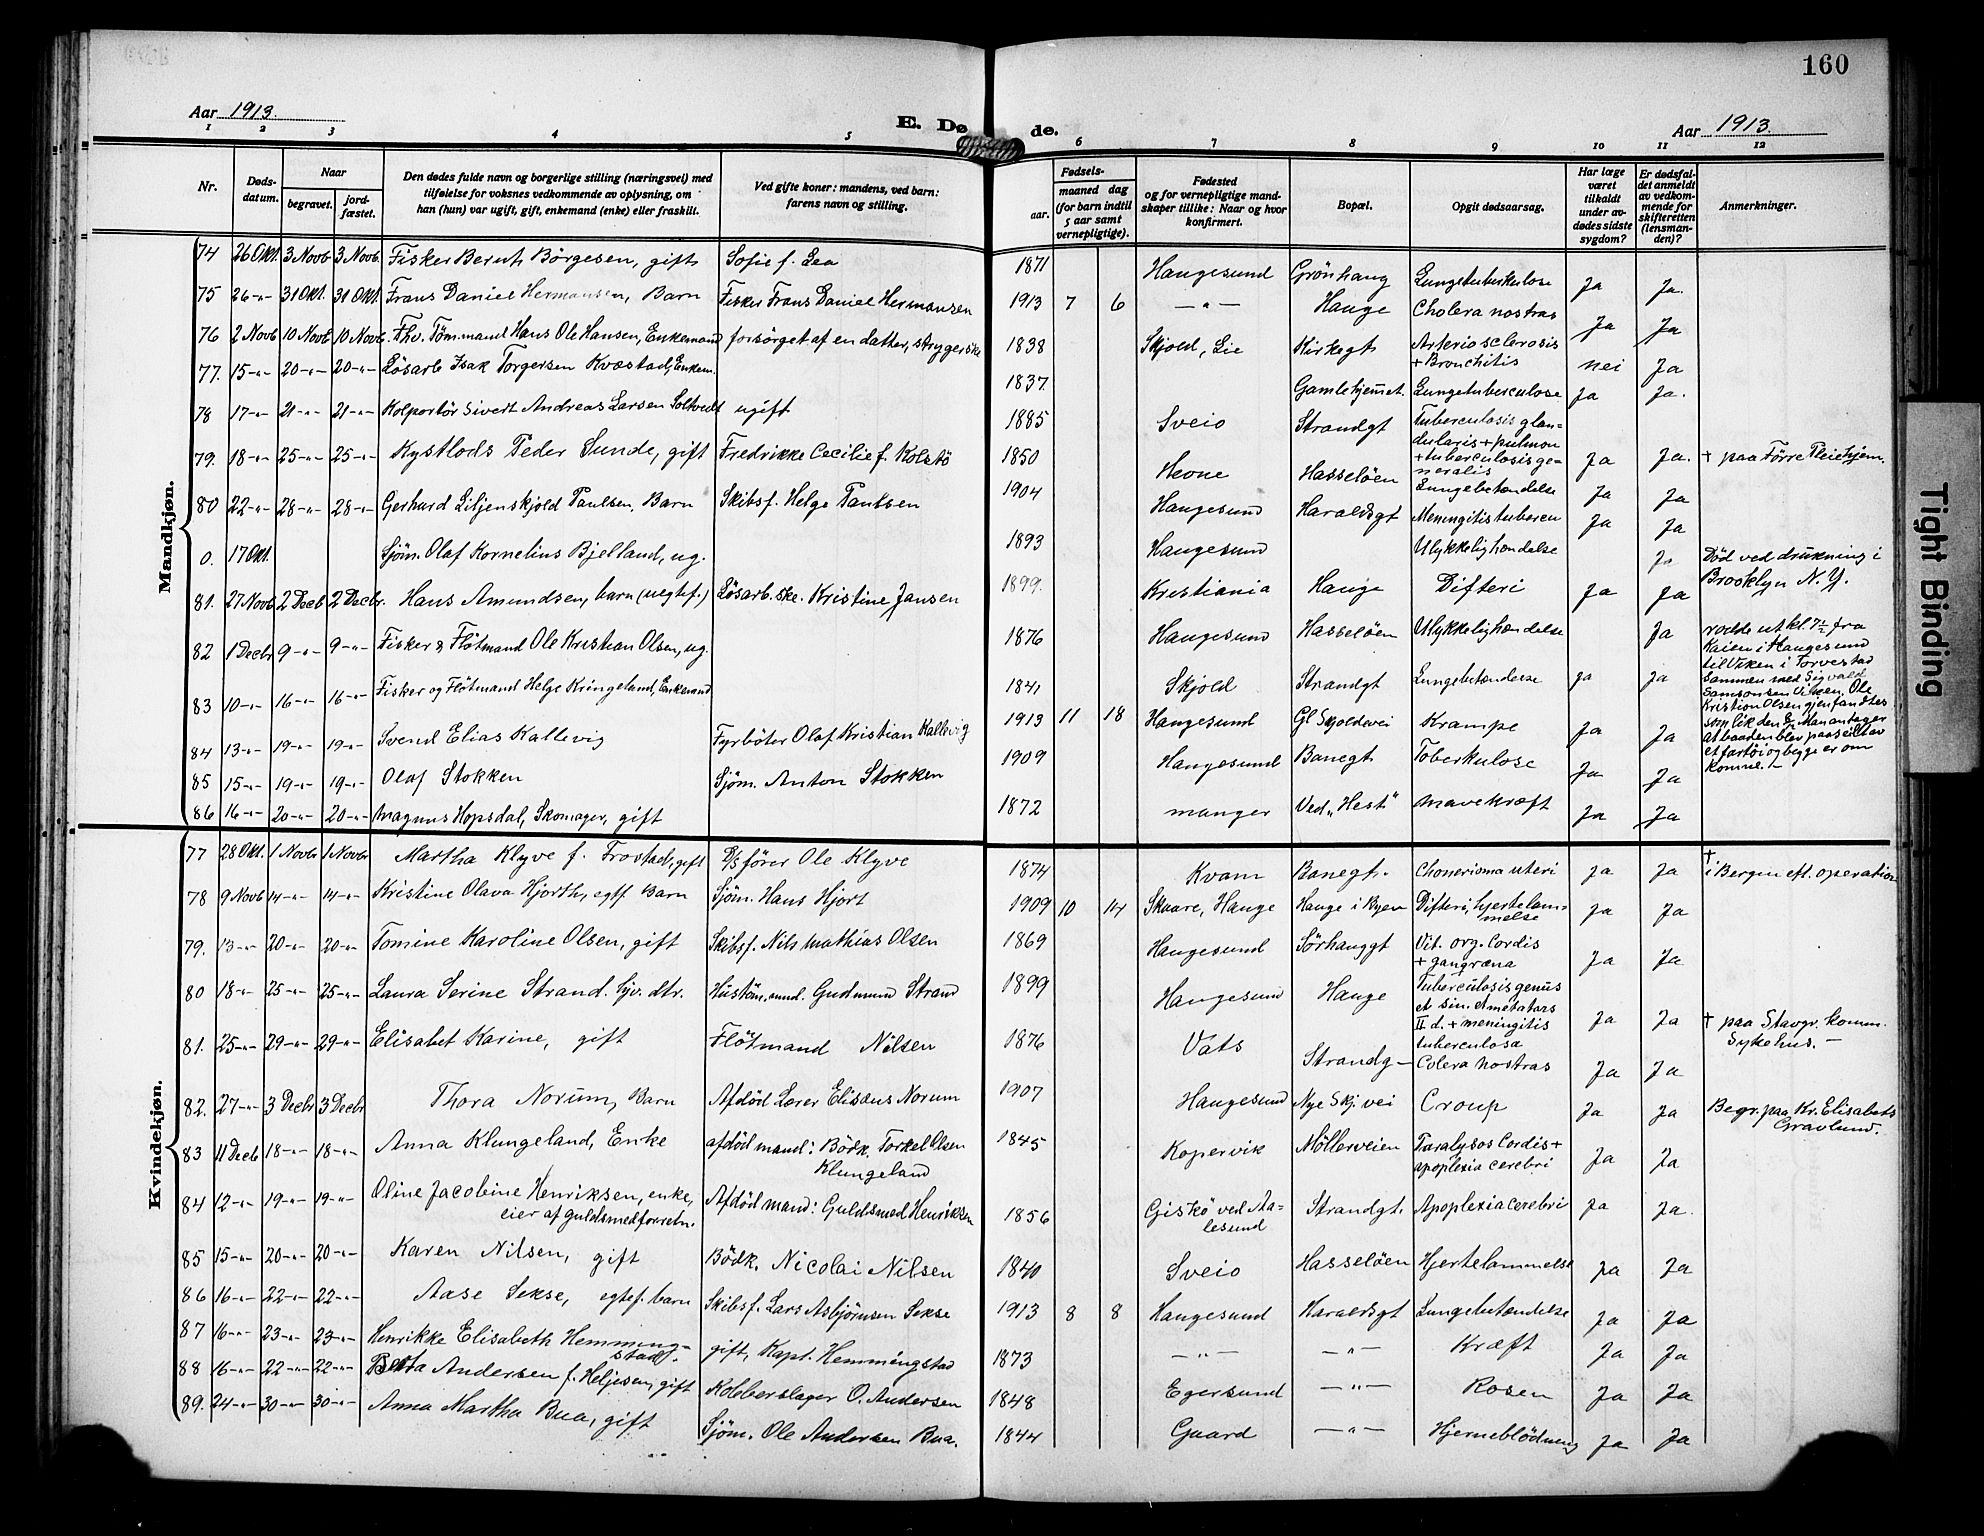 160
Aar 1913.
E. Dø de.
Aar 1913.
1 2 3 4 5 6 7 8 9 10 11 12
Nr.
Døds-datum.
Naar
begravet.
jord-fæstet.
Den dødes fulde navn og borgerlige stilling (næringsvei) med
tilføielse for voksnes vedkommende av oplysning, om
han (hun) var ugift, gift, enkemand (enke) eller fraskilt.
Ved gifte koner: mandens, ved barn:
farens navn og stilling.
Fødsels-
aar.
maaned dag
(for barn indtil
5 aar samt
vernepligtige).
Fødested
og for vernepligtige mand-
skaper tillike: Naar og hvor
konfirmert.
Bopæl.
Opgit dødsaarsag.
Har læge
været
tilkaldt
under av-
dødes sidste
sygdom?
Er dødsfal-
det anmeldt
av vedkom-
mende for
skifteretten
(lensman-
den)?
Anmerkninger.
Mandkjøn.
74 26 Okt. 3 Novb. 3 Novb. Fisker Bernt Börgesen, gift Sofie f. Lea 1871 Haugesund Grönhaug Lungetuberkulose Ja Ja.
75 26 -"- 31 Okt. 31 Okt. Frans Daniel Hermansen, Barn Fisker Frans Daniel Hermansen 1913 7 6 -"- Hauge Cholera nostras Ja Ja
76 2 Novb 10 Novb 10 Novb. Fhv. Tömmand Hans Ole Hansen, Enkemand forsörget af en datter, strygerske 1838 Skjold, Lie Kirkegt Arterio sclerosis
+ Bronchitis nei Ja
77. 15 -"- 20 -"- 20 -"- Lösarb Isak Torgersen Kvæstad, Enkem. 1837. Gamlehjemmet. Lungetuberculose Ja Ja.
78 17 -"- 21 -"- 21 -"- Kolportör Sivert Andreas Larsen Soltvedt ugift 1885 Sveio Strandgt Tuberculosis glan-
dularis + pulmon
+ tuberculosis ge-
neralis Ja Ja. † paa Förre Pleiehjem.
79. 18 -"- 25 -"- 25 -"- Kystlods Peder Sunde, gift Fredrikke Cecilie f. Kolstö 1850 Hasselöen Lungebetændelse Ja Ja
80 22 -"- 28 -"- 28 -"- Gerhard Liljenskjold Paulsen, Barn Skibsf. Helge Paulsen 1904 Haugesund Haraldsgt Meningitis tubercu Ja Ja
0. 17 Okt. Sjöm. Olaf Kornelius Bjelland, ug. 1893 Haugesund Ulykkelig hændelse Ja Död ved drukning i
Brooklyn N. Y.
81. 27 Novb 2 Decb 2 Decbr. Hans Amundsen, barn (uegtef.) Lösarb.ske. Kristine Jansen 1899. Kristiania Hauge Difteri Ja Ja
82 1 Decbr 9 -"- 9 -"- Fisker & Flötmand Ole Kristian Olsen, ug. 1876 Haugesund Hasselöen Ulykkelig hændelse Ja rodde ut kl. 7½ fra
Kaien i Haugesund
til Viken i Torvestad
sammen med Sigvald
Samsonsen Viken, Ole
Kristian Olsen gjenfandtes
som lik den 8/12. Man antager
at baaden blev paaseilt av
et fartöi og begge er om
komne. -
83 10 -"- 16 -"- 16 -"- Fisker og Flötmand Helge Kringeland, Enkemand 1841 Skjold Strandgt Lungebetændelse Ja Ja
84 13 -"- 19 -"- 19 -"- Svend Elias Kallevig Fyrböter Olaf Kristian Kallevig 1913 11 18 Haugesund Gl Skjoldevei Krampe Ja Ja
85 15 -"- 19 -"- 19 -"- Olaf Stokken Sjöm. Anton Stokken 1909 Haugesund Banegt Toberkulose Ja Ja
86 16 -"- 20 -"- 20 -"- Magnus Hopsdal, Skomager, gift 1872 Manger Ved "Hest" Mavekræft Ja Ja
Kvindekjøn.
77 28 Okt. 1 Novbr 1 Novbr Martha Klyve f. Frostad, gift D/S förer Ole Klyve 1874 Kvam Banegt. Chonerioma uteri Ja Ja †
i Bergen eft. operation
78 9 Novb 14 -"- 14 -"- Kristine Olava Hjorth, egtf. Barn Sjöm. Hans Hjort 1909 10 14 Skaare, Hauge Hauge i Byen Difteri, hjertelam-
melse Ja Ja
79. 13 -"- 20 -"- 20 -"- Tomine Karoline Olsen, gift Skibsf. Nils Mathias Olsen 1869 Haugesund Sörhauggt Vit. org. Cordis
+ gangræna Ja Ja
80 18 -"- 25 -"- 25 -"- Laura Serine Strand. hjv. dtr. Hustöm.mand. Gudmund Strand 1899 Haugesund Hauge Tuberculosis genus
et sin. et metatars
II d. + meningitis
tuberculosa Ja Ja † paa Stavgr. komm.
Sykehus. -
81. 25 -"- 29 -"- 29 -"- Elisabet Karine, gift Flötmand Nilsen 1876 Vats Strandg - Colera nostras Ja Ja
82. 27 -"- 3 Decbr 3 Decbr Thora Norum, Barn Afdöd Lærer Elisæus Norum 1907 Haugesund Nye Skj. vei Croup Ja Ja Begr. paa Kr. Elisabets
Gravlund.
83 11 Decb 18 -"- 18 -"- Anna Klungeland, Enke afdöd mand: Bödk. Torkel Olsen
Klungeland 1845 Kopervik Möllerveien Paralysos Cordis +
apoplexia cerebri Ja Ja
84 12 -"- 19 -"- 19 -"- Oline Jacobine Henriksen, enke,
eier af guldsmedforretn. Afdöd mand: Guldsmed Henriksen 1856 Giskö ved Aa-
lesund Strandgt. Apoplexia cerebri Ja Ja.
85 15 -"- 20 -"- 20 -"- Karen Nilsen, gift Bödk. Nicolai Nilsen 1840 Sveio Hasselöen Hjertelammelse Ja Ja
86 16 -"- 22 -"- 22 -"- Aase Sekse, egtef. barn Skibsf. Lars Asbjörnsen Sekse 1913 8 8 Haugesund Haraldsgt Lungebetændelse Ja Ja
87 16 -"- 23 -"- 23 -"- Henrikke Elisabeth Hemming-
stad. gift, Kapt. Hemmingstad 1873 -"- -"- Kræft Ja Ja
88 16 -"- 22 -"- 22 -"- Berta Andersen f. Heljesen, gift Kobberslager O. Andersen 1848 Egersund -"- Rosen Ja Ja
89. 24 -"- 30 -"- 30 -"- Anna Martha Bua, gift Sjöm. Ole Andersen Bua. 1844 Gaard -"- Hjerneblödning Ja Ja
Tight Binding